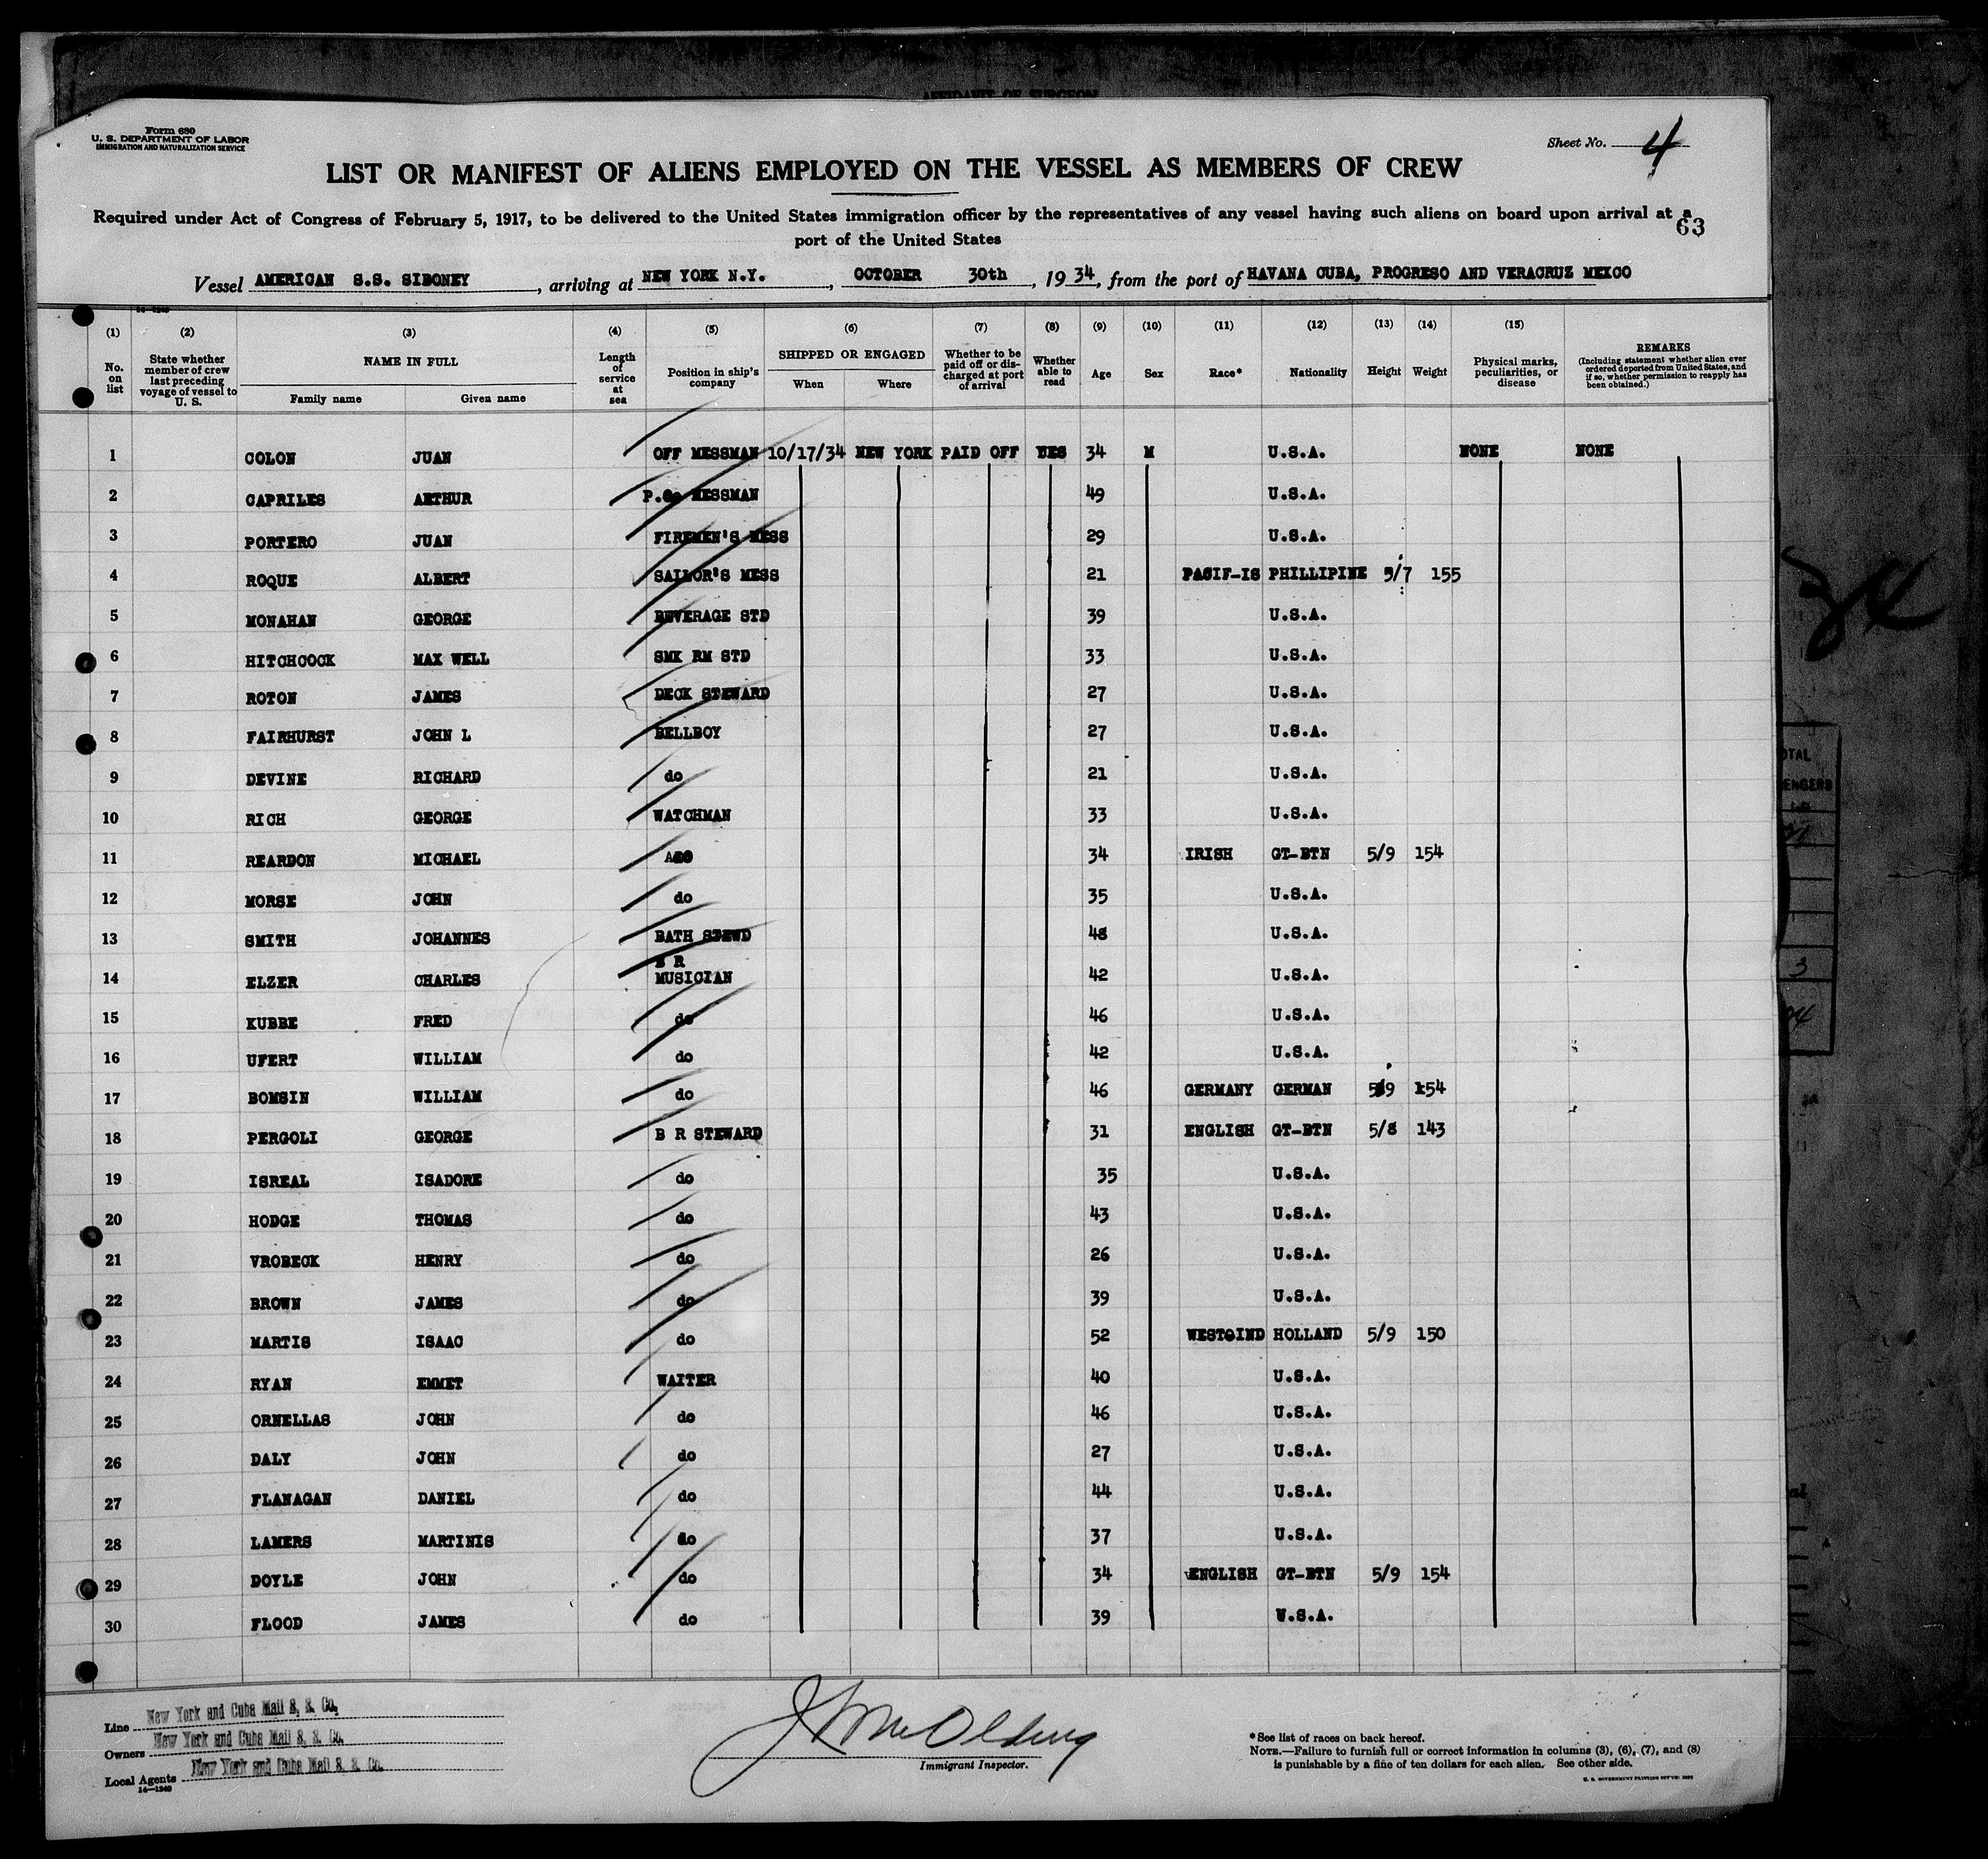 AFFIDAVIT OF SURGEON
Form 680
U. S. DEPARTMENT OF LABOR
IMMIGRATION AND NATURALIZATION SERVICE
Sheet No. 4
LIST OR MANIFEST OF ALIENS EMPLOYED ON THE VESSEL AS MEMBERS OF CREW
Required under Act of Congress of February 5, 1917, to be delivered to the United States immigration officer by the representatives of any vessel having such aliens on board upon arrival at a
port of the United States
63
Vessel AMERICAN S.S. SIBONEY, arriving at NEW YORK N.Y., OCTOBER 30th, 1934, from the port of HAVANA CUBA, PROGRESO AND VERACRUZ MEXCO
(1) (2) (3) (4) (5) (6) (7) (8) (9) (10) (11) (12) (13) (14) (15)
No. on list State whether member of crew last preceding voyage of vessel to U. S. NAME IN FULL Family name Given name Length of service at sea Position in ship's company SHIPPED OR ENGAGED When Where Whether to be paid off or discharged at port of arrival Whether able to read Age Sex Race* Nationality Height Weight Physical marks, peculiarities, or disease REMARKS (Including statement whether alien ever ordered deported from United States, and if so, whether permission to reapply has been obtained.)
1 COLON JUAN OFF MESSMAN 10/17/34 NEW YORK PAID OFF YES 34 M U.S.A. NONE NONE
2 CAPRILES ARTHUR P.O. MESSMAN 49 U.S.A.
3 PORTERO JUAN FIREMEN'S MESS 29 U.S.A.
4 ROQUE ALBERT SAILOR'S MESS 21 PACIF-IS PHILLIPINE 5/7 155
5 MONAHAN GEORGE BEVERAGE STD 39 U.S.A.
6 HITCHCOCK MAX WELL SMK RM STD 33 U.S.A.
7 ROTON JAMES DECK STEWARD 27 U.S.A.
8 FAIRHURST JOHN L BELLBOY 27 U.S.A.
9 DEVINE RICHARD do 21 U.S.A.
10 RICH GEORGE WATCHMAN 33 U.S.A.
11 REARDON MICHAEL 34 IRISH GT-BTN 5/9 154
12 MORSE JOHN do 35 U.S.A.
13 SMITH JOHANNES BATH STEWD 48 U.S.A.
14 ELZER CHARLES B R MUSICIAN 42 U.S.A.
15 KUBBE FRED do 46 U.S.A.
16 UFERT WILLIAM do 42 U.S.A.
17 BOMSIN WILLIAM do 46 GERMANY GERMAN 5/9 154
18 PERGOLI GEORGE B R STEWARD 31 ENGLISH GT-BTN 5/8 143
19 ISREAL ISADORE do 35 U.S.A.
20 HODGE THOMAS do 43 U.S.A.
21 VROBECK HENRY do 26 U.S.A.
22 BROWN JAMES do 39 U.S.A.
23 MARTIS ISAAC do 52 WEST-IND HOLLAND 5/9 150
24 RYAN EMMET WAITER 40 U.S.A.
25 ORNELLAS JOHN do 46 U.S.A.
26 DALY JOHN do 27 U.S.A.
27 FLANAGAN DANIEL do 44 U.S.A.
28 LAMERS MARTINIS do 37 U.S.A.
29 DOYLE JOHN do 34 ENGLISH GT-BTN 5/9 154
30 FLOOD JAMES do 39 U.S.A.
Line New York and Cuba Mail S. S. Co.
Owners New York and Cuba Mail S. S. Co.
Local Agents New York and Cuba Mail S. S. Co.
14—1240
Immigrant Inspector.
*See list of races on back hereof.
NOTE.—Failure to furnish full or correct information in columns (3), (6), (7), and (8)
is punishable by a fine of ten dollars for each alien. See other side.